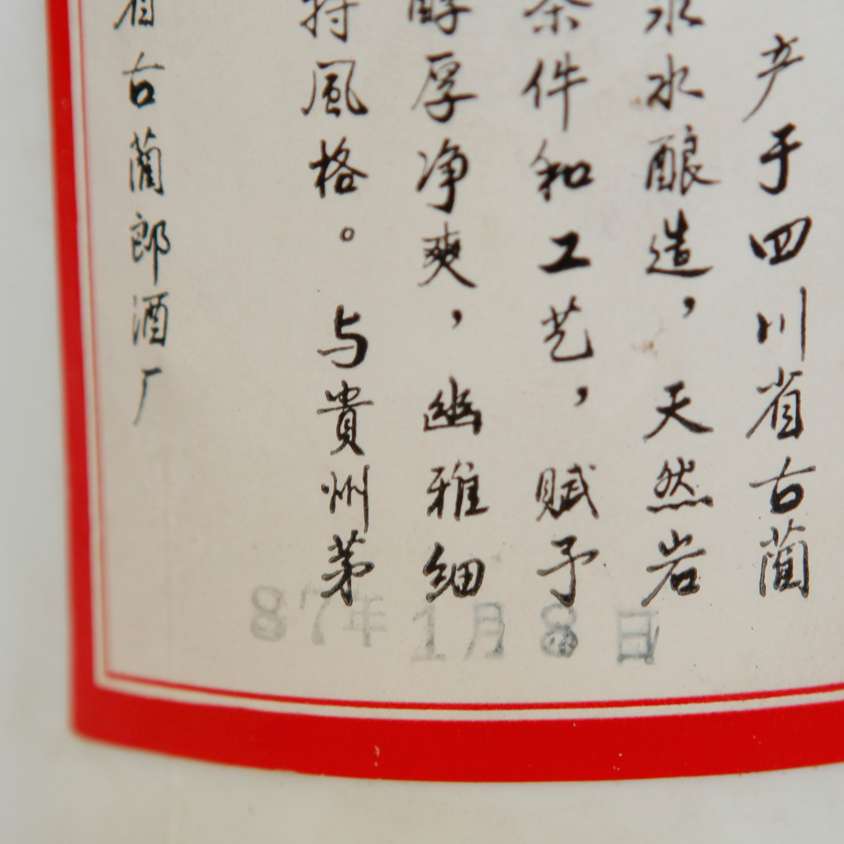 产于四川省古蔺
水酿造，天然岩
条件和工艺，赋予
醇厚净爽，幽雅细
特風格。与貴州茅
省古藺郎酒厂
87年1月8日